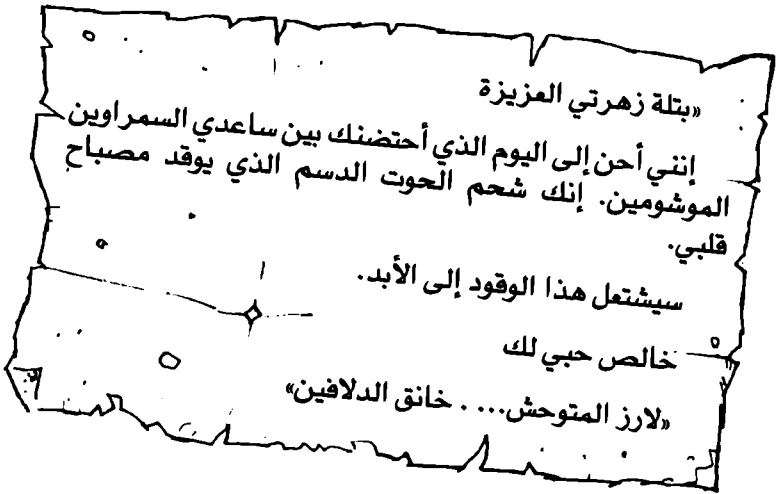 «بتلة زهرتي العزيزة
إنني أحن إلى اليوم الذي أحتضنك بين ساعدي السمراوين
الموشومين. إنك شحم الحوت الدسم الذي يوقد مصباح
قلبي.
سيشتعل هذا الوقود إلى الأبد.
خالص حبي لك
«لارز المتوحش.... خانق الدلافين»